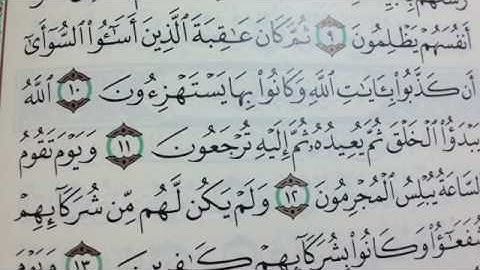 أَنفُسَهُمْ يَظْلِمُونَ ٩ ثُمَّ كَانَ عَـٰقِبَةَ ٱلَّذِينَ أَسَـٰٓـُٔوا۟ ٱلسُّوٓأَىٰٓ
أَن كَذَّبُوا۟ بِـَٔايَـٰتِ ٱللَّهِ وَكَانُوا۟ بِهَا يَسْتَهْزِءُونَ ١٠ ٱللَّهُ
يَبْدَؤُا۟ ٱلْخَلْقَ ثُمَّ يُعِيدُهُۥ ثُمَّ إِلَيْهِ تُرْجَعُونَ ١١ وَيَوْمَ تَقُومُ
ٱلسَّاعَةُ يُبْلِسُ ٱلْمُجْرِمُونَ ١٢ وَلَمْ يَكُن لَّهُم مِّن شُرَكَآئِهِمْ
شُفَعَـٰٓؤُا۟ وَكَانُوا۟ بِشُرَكَآئِهِمْ كَـٰفِرِينَ ١٣ وَيَوْمَ